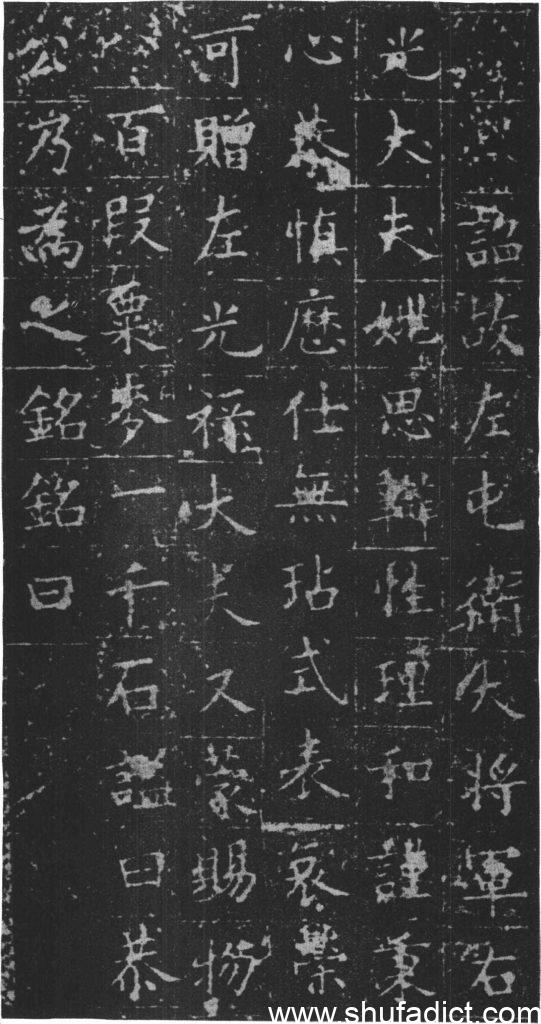 詔故左屯衛失將軍右
光大夫姚思辯性理和謹秉
心恭慎歷仕無玷式表哀榮
可贈左光祿大夫又蒙賜物
百段粟麥一千石謚曰恭
公乃為之銘銘曰
www.shufadict.com